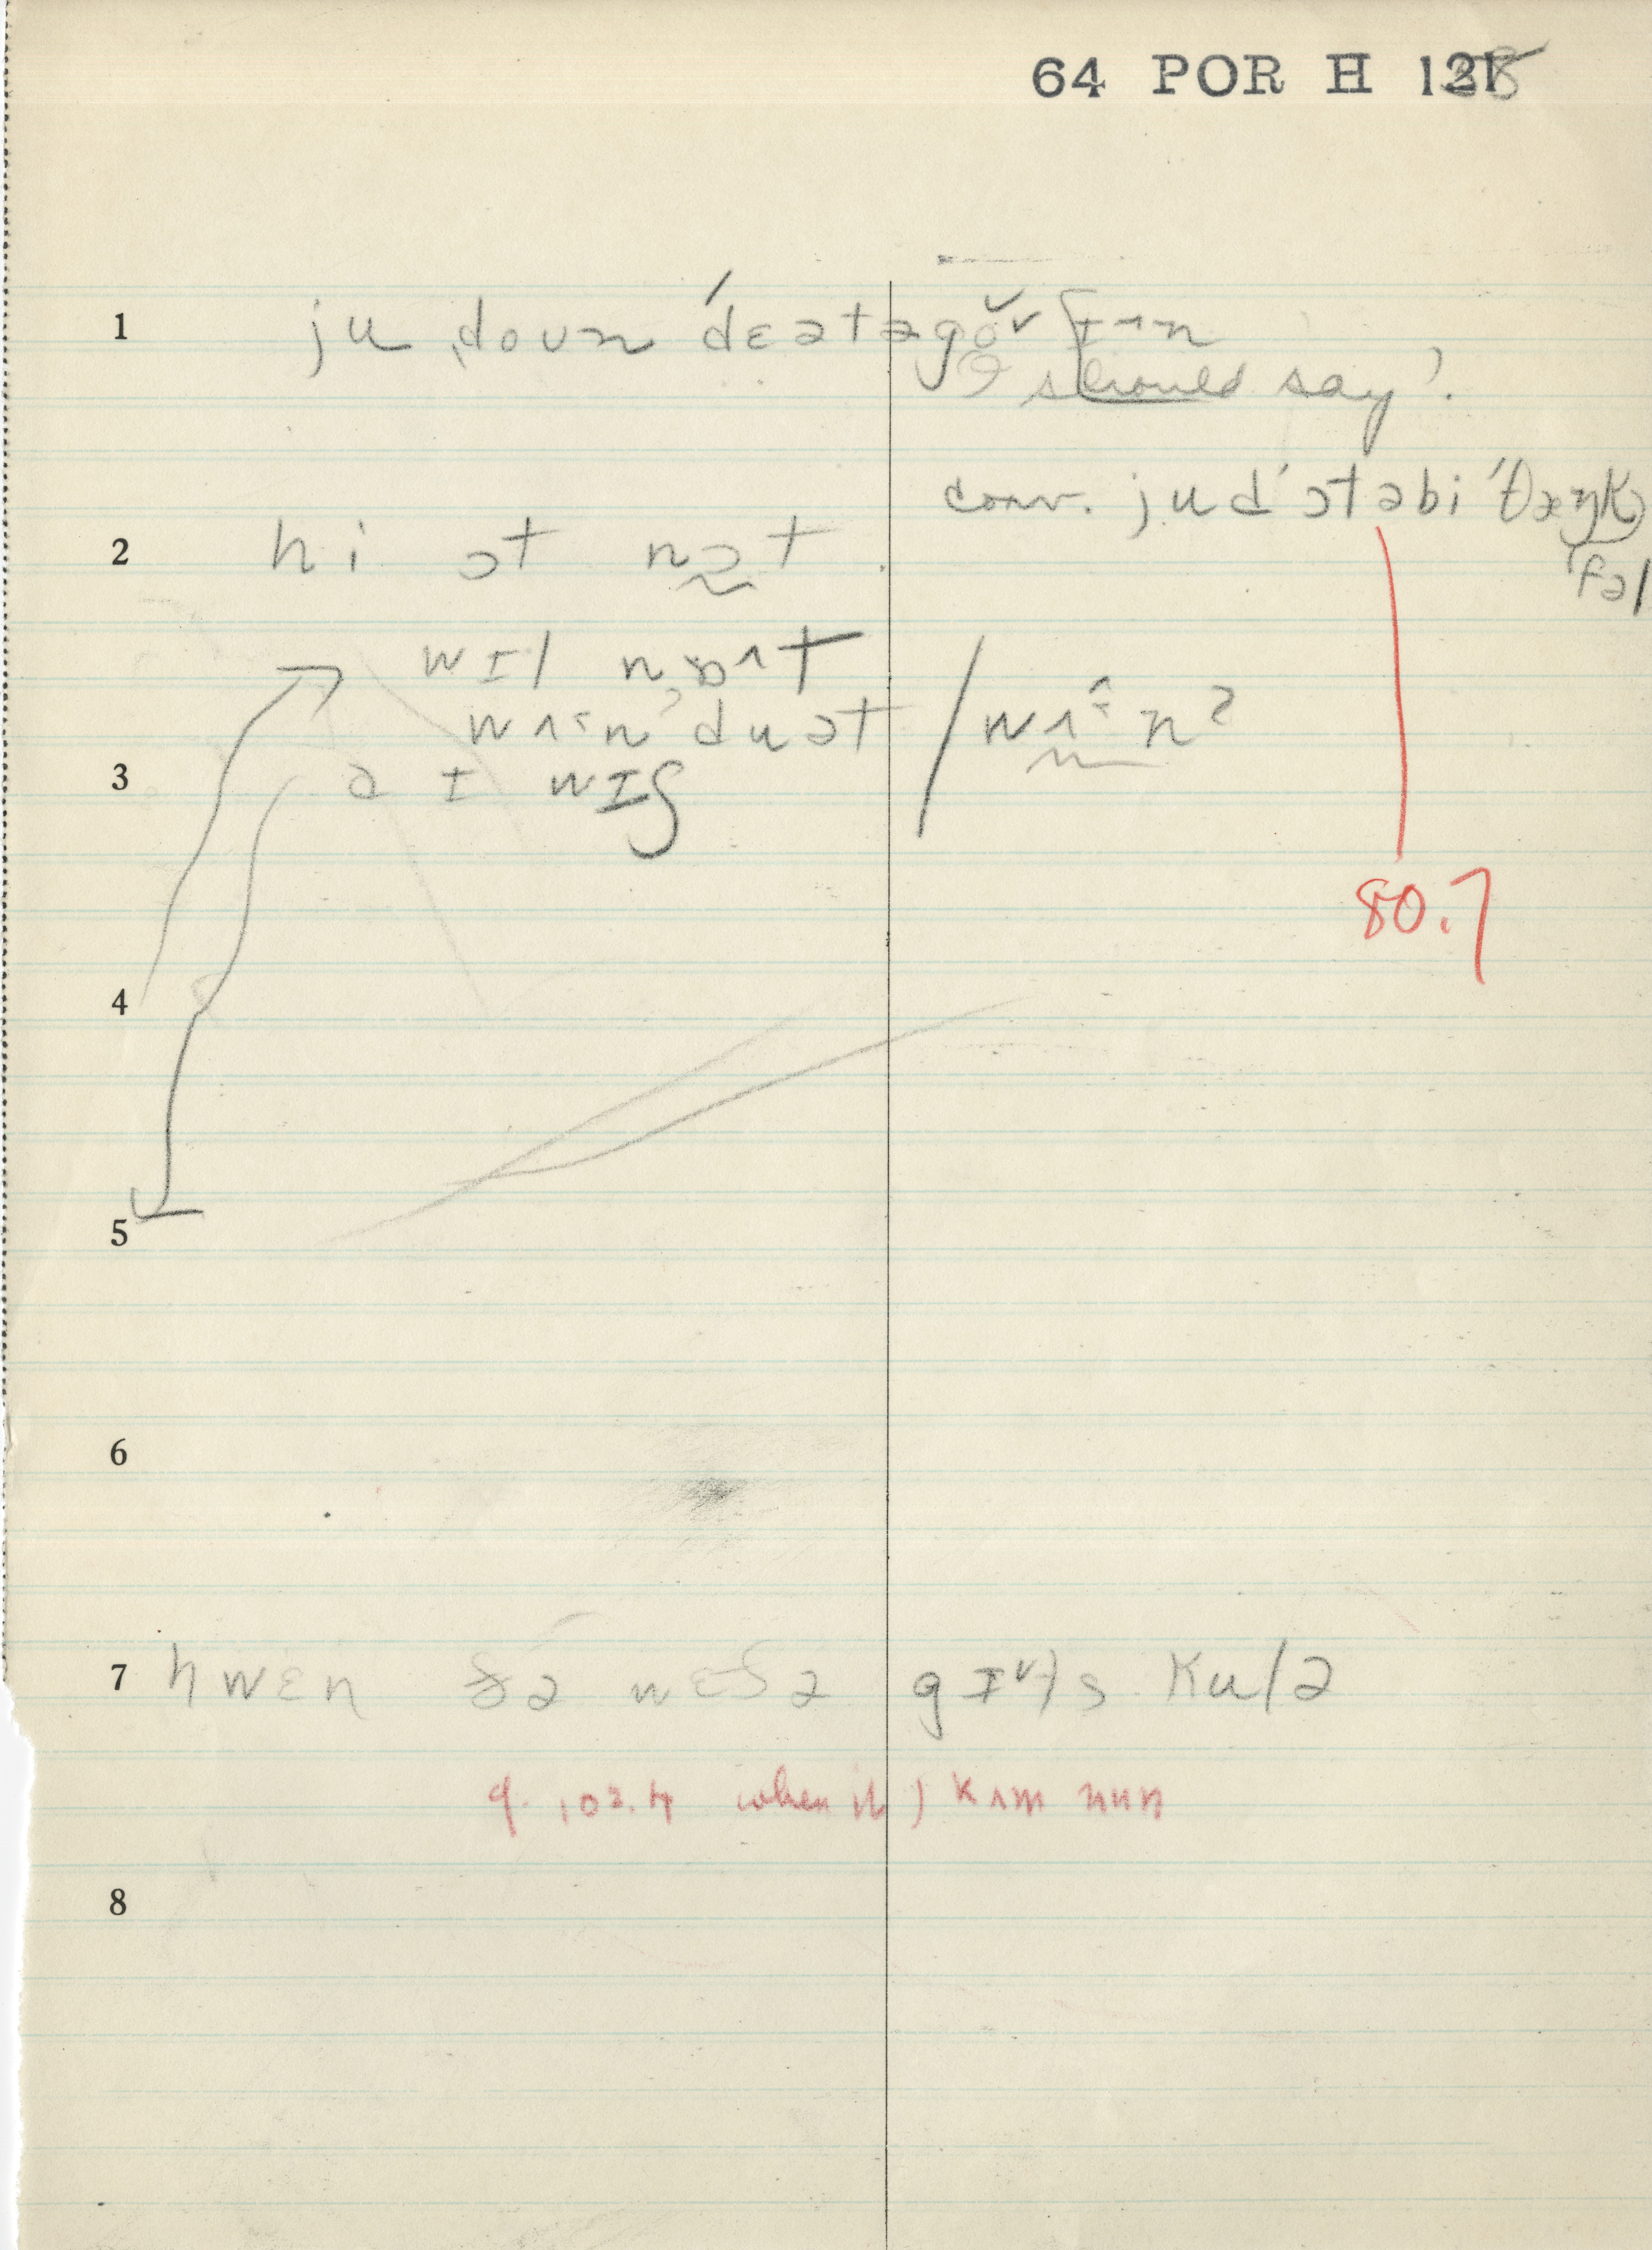 64 POR H 128
1 ju ˌdoʊn ˈdɛətəgoʊ ʃɪʌn
I should say'.
conv. judˈɔtəbiˈθæŋk
fəl
2 hi ɔt nɔt
wɪl nɒʌt
wʌɪn duət / wʌɪn?
3 aɪ wɪʃ
80.7
4
5
6
7 hwɛn ðə wɛðə gɪts kulə
q. 102.4 when it) kʌm nun
8